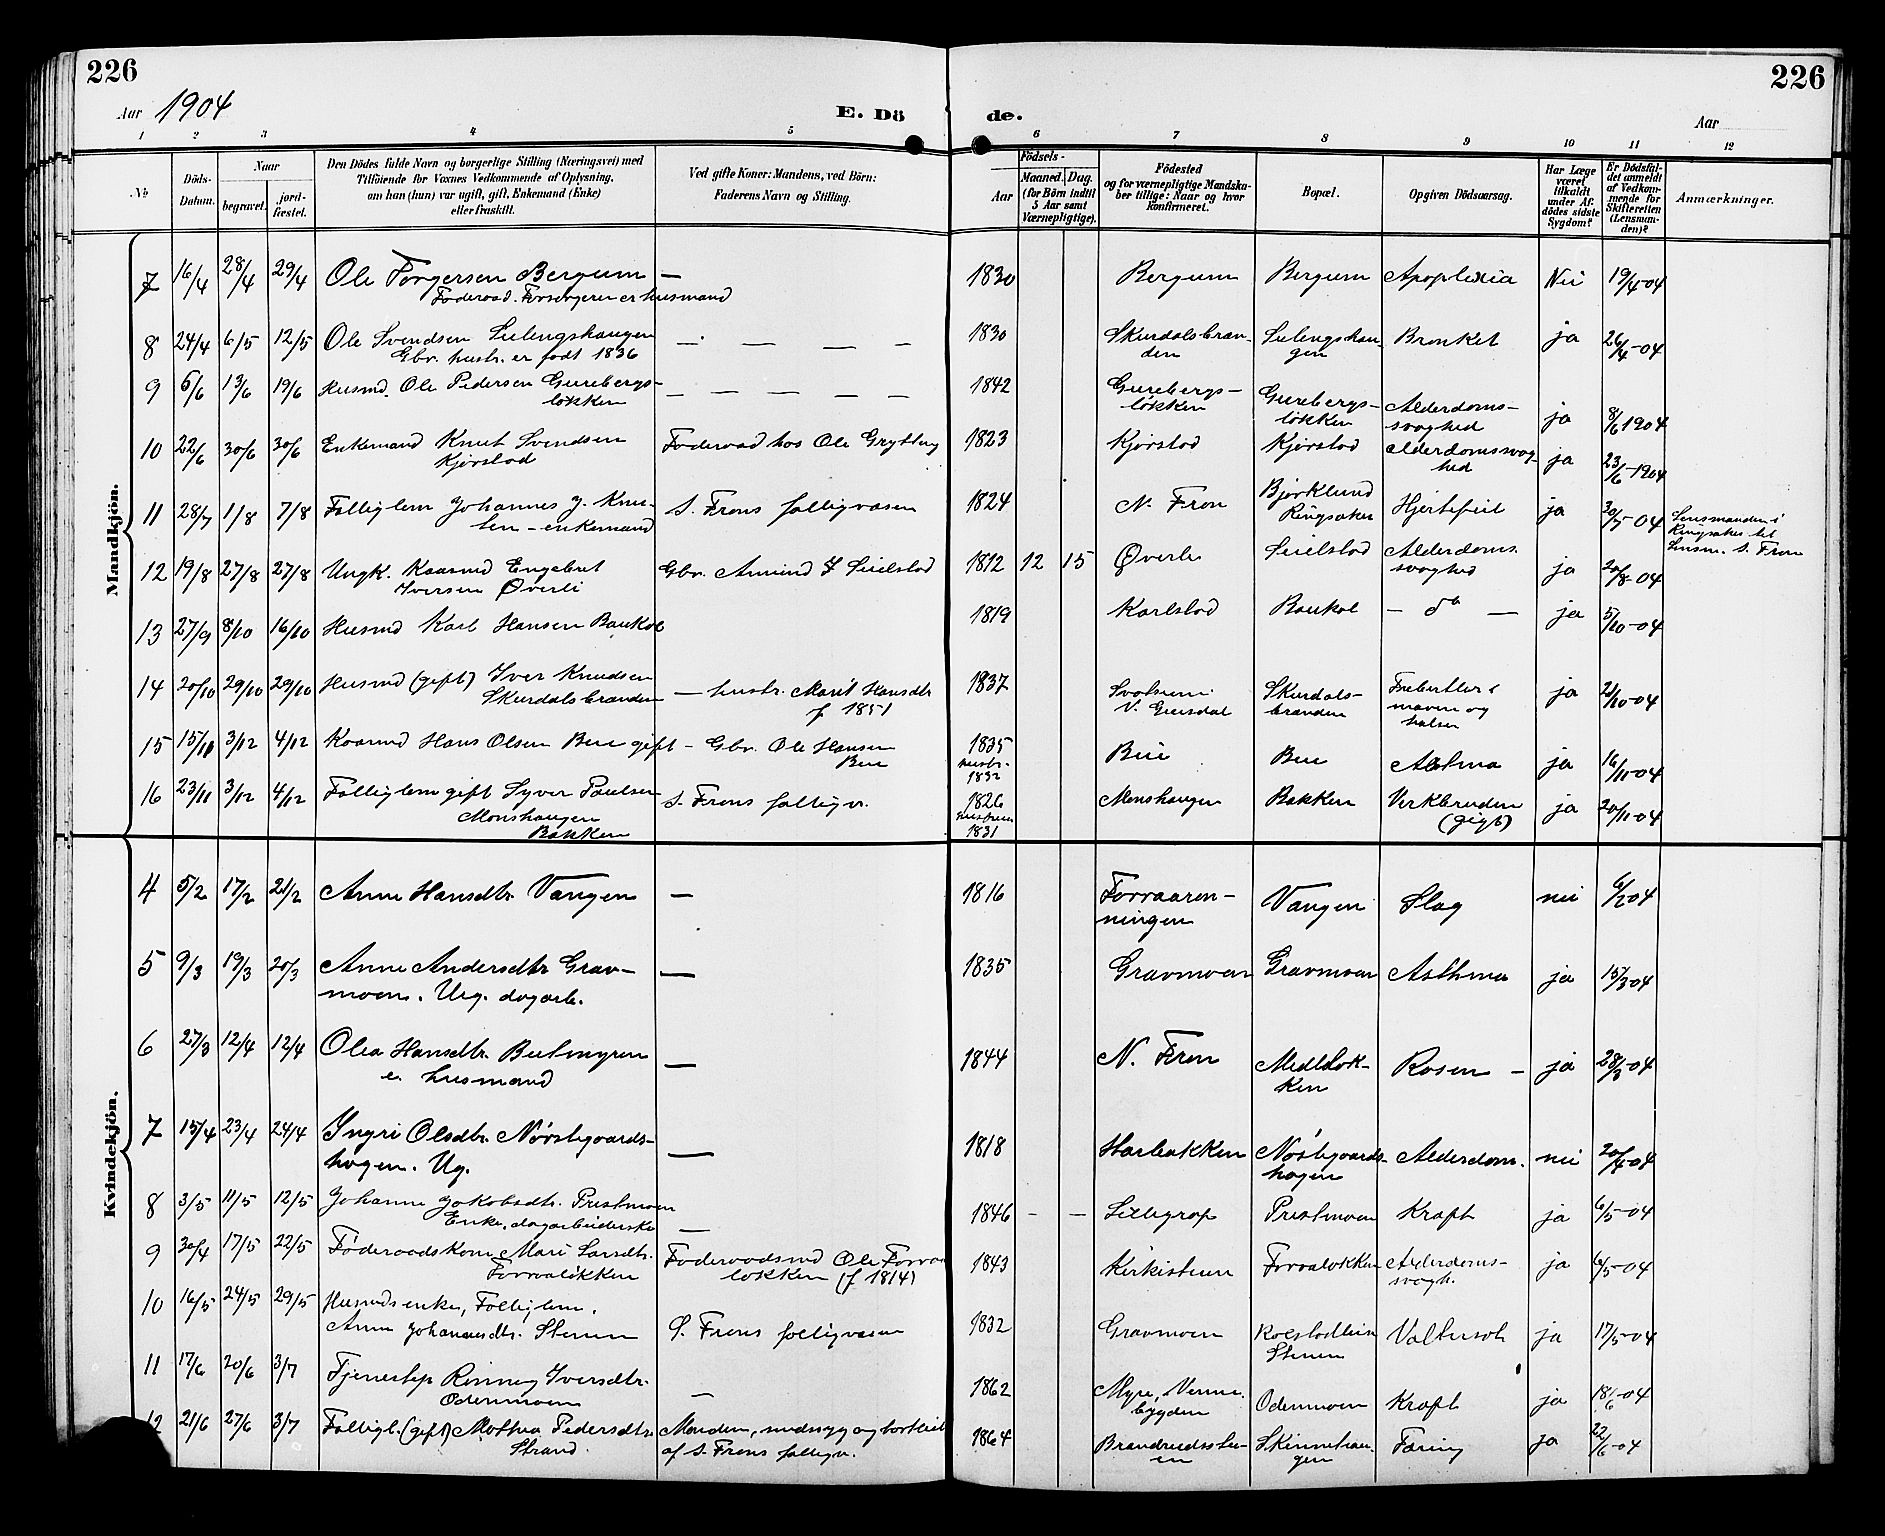 226
226
Aar 1904
E. Dö
de.
Aar
1 2 3 4 5 6 7 8 9 10 11 12
№
Döds-Datum.
Naar
begravet.
jord-fæstet.
Den Dödes fulde Navn og borgerlige Stilling (Næringsvei) med
Tilföiende for Voxnes Vedkommende af Oplysning,
om han (hun) var ugift, gift, Enkemand (Enke)
eller fraskilt.
Ved gifte Koner: Mandens, ved Börn:
Faderens Navn og Stilling.
Födsels-
Aar
Maaned. Dag.
(for Börn indtil
5 Aar samt
Værnepligtige).
Födested
og for værnepligtige Mandska-
ber tillige: Naar og hvor
konfirmeret.
Bopæl.
Opgiven Dödsaarsag.
Har Læge
været
tilkaldt
under Af-
dödes sidste
Sygdom?
Er Dödsfal-
det anmeldt
af Vedkom-
mende for
Skifteretten
(Lensman-
den)?
Anmærkninger.
Mandkjön.
7 16/4 28/4 29/4 Ole Torgersen Bergum — 1830 Bergum Bergum Apoplexia Nei 19/4-04
Føderaad. Forsørgeren er husmand
8 24/4 6/5 12/5 Ole Svendsen Sulengshaugen — — — — 1830 Skurdalsbræn- Sulengshau- Bronket ja 26/4-04
Gbr. hustr. er født 1836 den gen
9 5/6 13/6 19/6 Husmd. Ole Pedersen Gurebergs- — — — — — 1842 Gurebergs- Gurebergs- Alderdoms- ja 8/6 1904
løkken løkken løkken svaghed
10 22/6 30/6 30/6 Enkemand Knut Svendsen Føderaad hos Ole Grytting 1823 Kjørstad Kjørstad Alderdomssvag- ja 23/6-1904
Kjørstad hed
11 28/7 1/8 7/8 Fattiglem Johannes J. Knut- S. Frons fattigvæsen 1824 N. Fron Bjørklund Hjertefeil ja 30/7-04 Lensmanden i
sen - enkemand Ringsaker Ringsaker til
Lensm. S. Fron
12 19/8 27/8 27/8 Ungk. Kaarmd Engebret Gbr. Amund I Seielstad 1812 12 15 Øverli Seielstad Alderdoms- ja 20/8-04
Iversen Øverli svaghed
13 27/9 8/10 16/10 Husmd Karl Hansen Baukol 1819 Karlstad Baukol — do — ja 5/10-04
14 20/10 29/10 29/10 Husmd (gift) Iver Knudsen — hustr. Marit Hansdtr 1837 Svatsum Skurdals- ja 21/10-04
Skurdalsbrænden f 1851 V. Gusdal brænden maven og
halsen
15 15/11 3/12 4/12 Kaarmd Hans Olsen Bue gift - Gbr. Ole Hansen 1835 Bue Bue Astma ja 16/11-04
Bue hustr.
1832
16 23/11 3/12 4/12 Fattiglem gift Syver Paulsen S. Frons fattigv. 1826 Monshaugen Bakken Verkbruden ja 20/11-04
Monshaugen hustruen (gigt)
Bakken 1831
Kvindekjön.
4 5/2 17/2 21/2 Anne Hansdtr. Vangen — 1816 Forraaren- Vangen Slag nei 6/2 04
ningen
5 9/3 19/3 20/3 Anne Andersdtr Grav- — 1835 Gravmoen Gravmoen Asthma ja 15/3 04
moen. Ug. dagarb.
6 27/3 12/4 12/4 Olea Hansdtr. Butmyren — 1844 N. Fron Medeløk- Rosen — ja 28/3-04
e. husmand ken
7 15/4 23/4 24/4 Yngri Olsdtr. Nørstegaards- — 1818 Harbakken Nøstegaards- Alderdom. nei 20/4-04
hagen. Ug. hagen
8 3/5 11/5 12/5 Johanne Jakobsdtr. Prestmoen — 1846 - — Prestmoen Kræft ja 6/5-04
Enke, dagarbeiderske
9 30/4 17/5 22/5 Føderaadskone Mari Larsdtr. Føderaadsmd Ole Forraa 1843 Kirkestuen Forraløkken Alderdoms- ja 6/5-04
Forraløkken løkken (f 1814) svagh.
10 16/5 24/5 29/5 Husmdsenke, Fattiglem. 1832 Gravmoen Kolstadteien Vattersot ja 17/5-04
Anne Johannesdtr. Stenen S. Frons fattigvæsen Stenen
11 17/6 20/6 3/7 Tjenestep Rønnog Iversdtr. — 1862 Myre, Venne- Odenmoen Kræft ja 18/6-04
Odenmoen bygden
12 21/6 27/6 3/7 Fattigl. (gift) Mathea Pedersdtr. Manden, sindssyg og bortleiet 1864 Brandrudsstu- Skinnehau- Tæring ja 22/6-04
Strand. af S. Frons fattigv. en gen